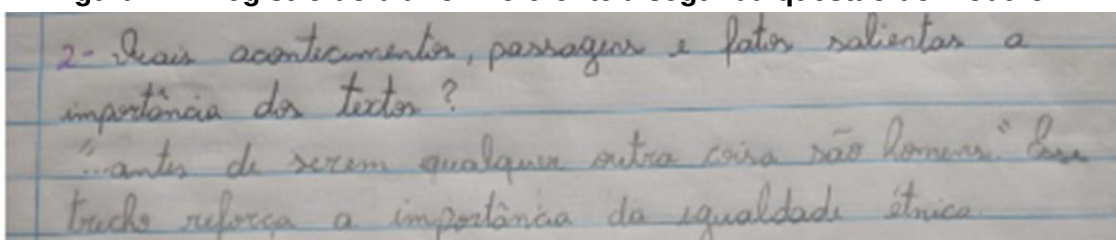 2- Quais acontecimentos, passagens e fatos salientas a
importância dos textos?
"...antes de serem qualquer outra coisa são homens." Esse
trecho reforça a importância da igualdade étnica.